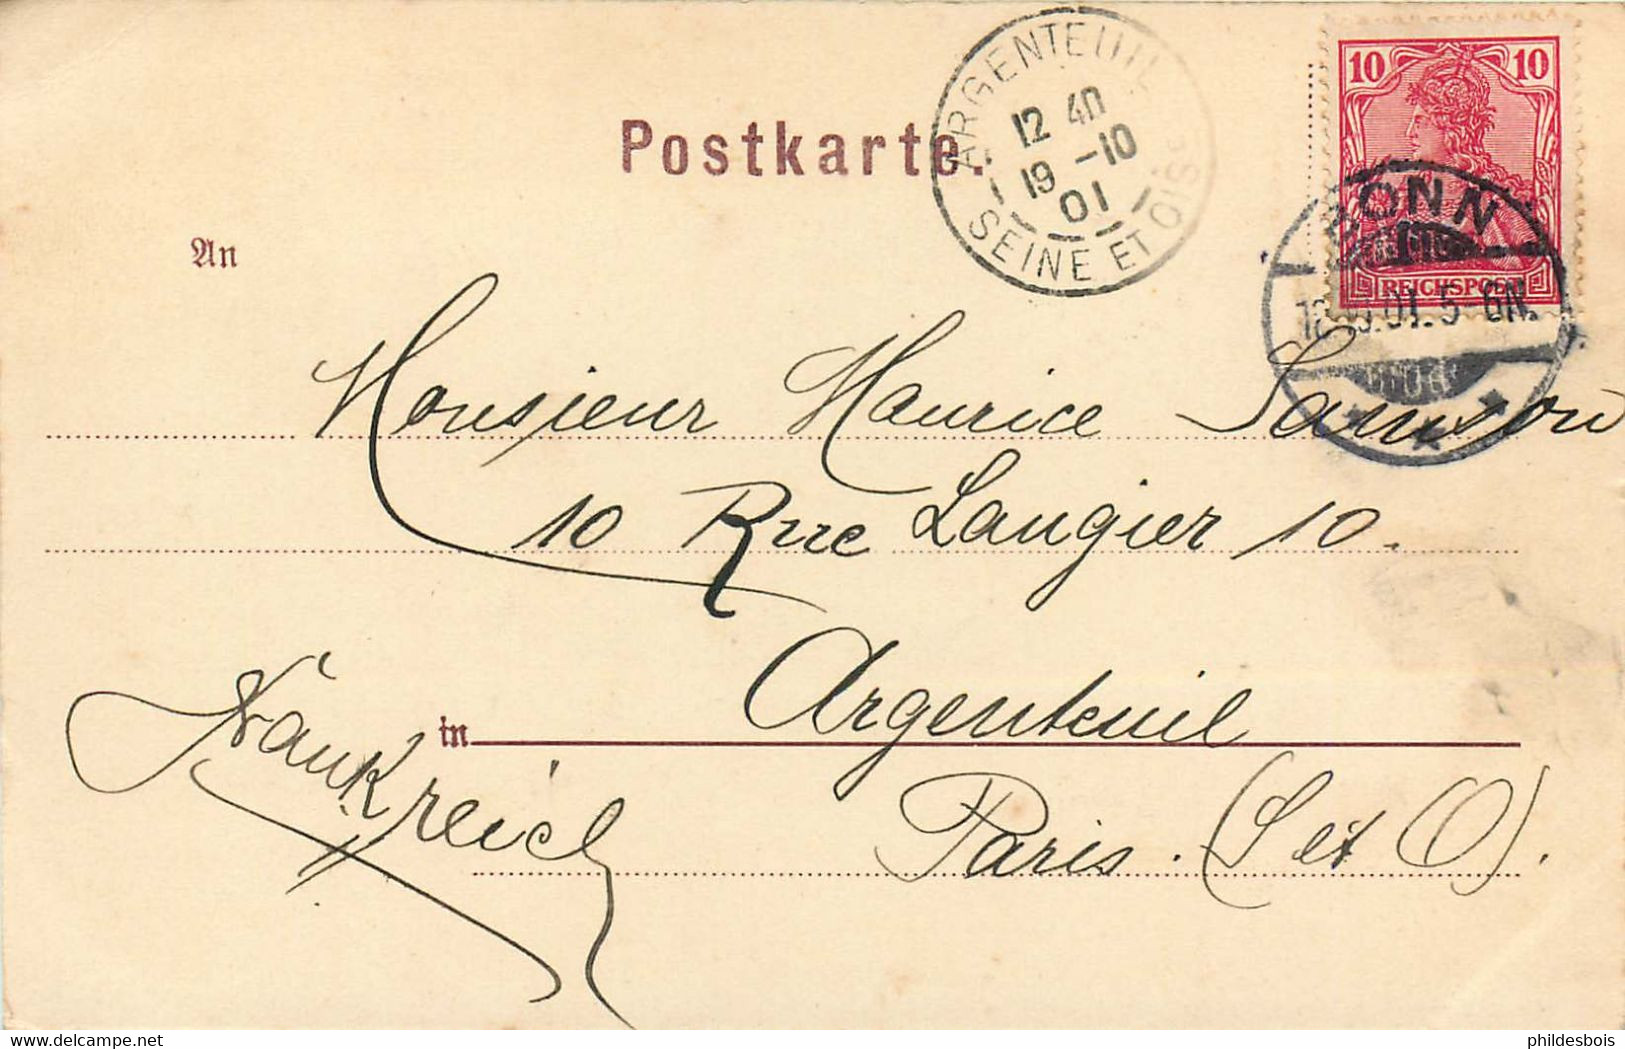 Postkarte.
ARGENTEUIL
12 40
19 -10
01
SEINE ET OISE
10 10
REICHSPOST
BONN
5-6N.
An
Monsieur Maurice Samson
10 Rue Laugier 10.
in Argenteuil
Frankreich
Paris. (S et O).
delcampe.net
phildesbois